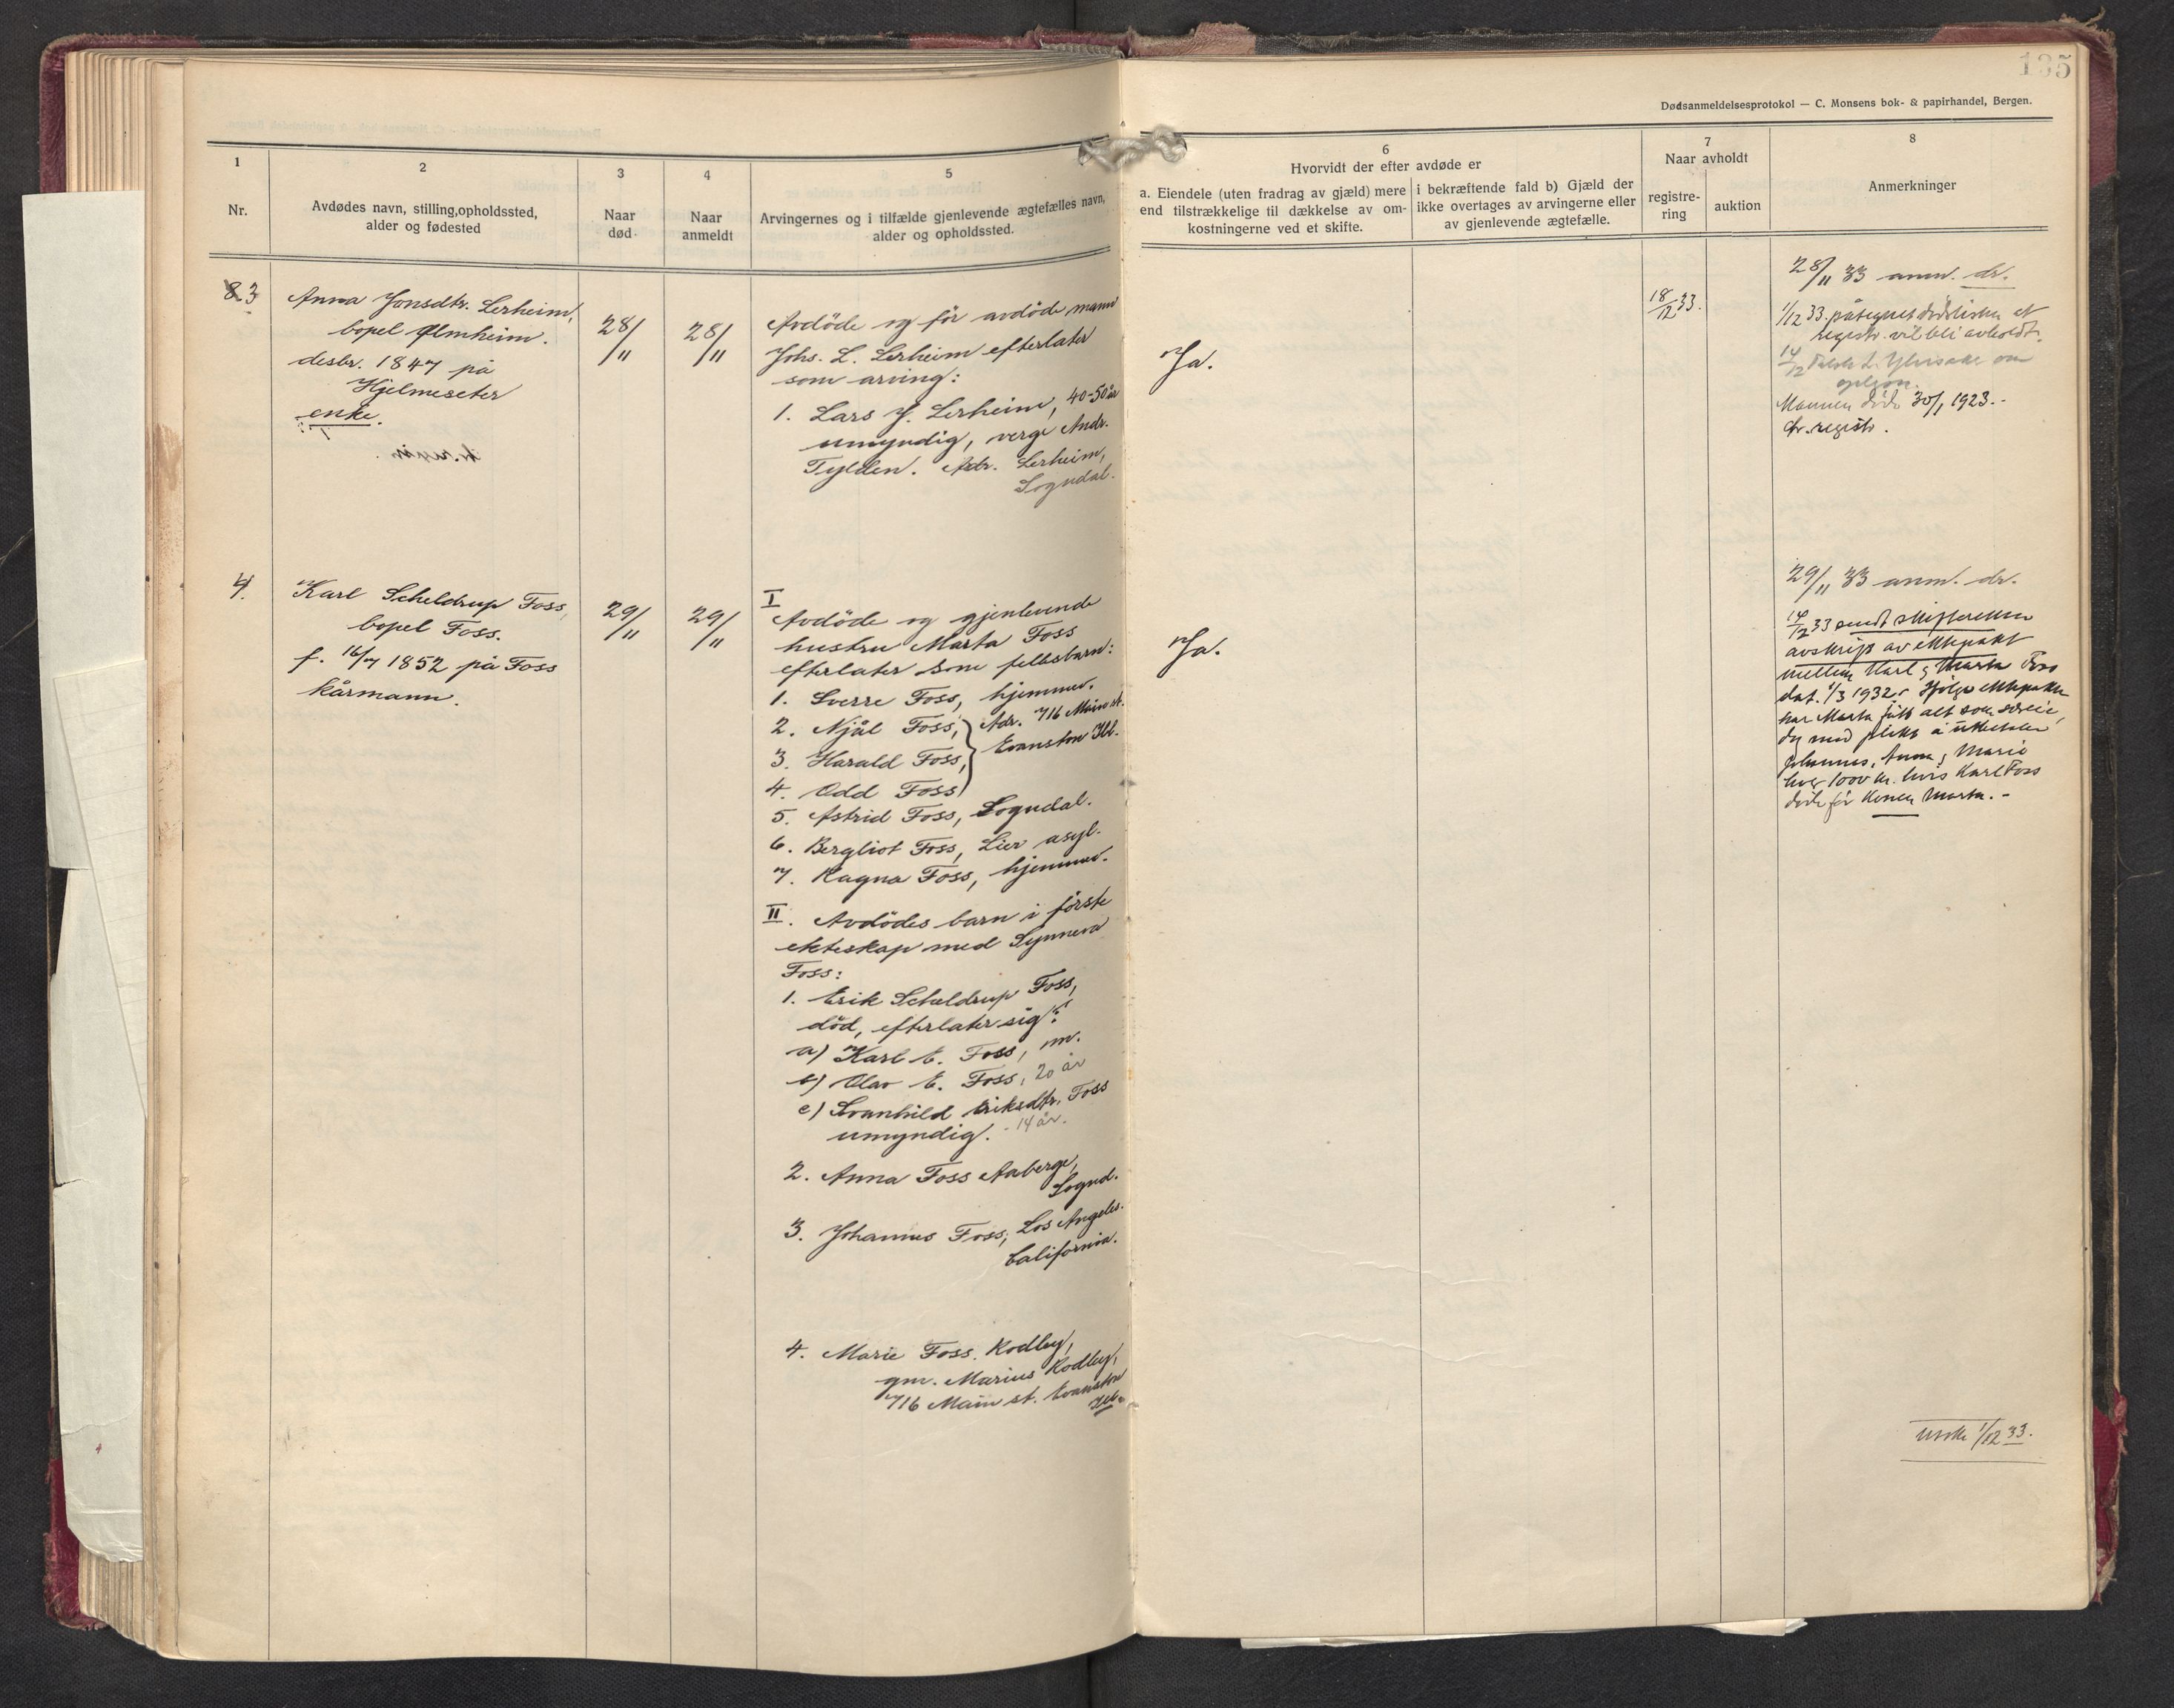 135
Dødsanmeldelsesprotokol — C. Monsens bok- & papirhandel, Bergen.
1
Nr.
2
Avdødes navn, stilling,opholdssted,
alder og fødested
3
Naar
død
4
Naar
anmeldt
5
Arvingernes og i tilfælde gjenlevende ægtefælles navn,
alder og opholdssted.
6
Hvorvidt der efter avdøde er
a. Eiendele (uten fradrag av gjæld) mere
end tilstrækkelige til dækkelse av om-
kostningerne ved et skifte.
i bekræftende fald b) Gjæld der
ikke overtages av arvingerne eller
av gjenlevende ægtefælle.
7
Naar avholdt
registre-
ring
auktion
8
Anmerkninger
3
Anna Jonsdtr. Lerheim,
bopel Olmheim.
desbr. 1847 på
Hjelmeseter
enke.
28/11
28/11
Avdöde og för avdöde mann
Johs. L. Lerheim efterlater
som arving:
1. Lars J. Lerheim, 40-50 år
umyndig, verge Andr.
Tylden. Adr. Lerheim,
Sogndal.
Ja.
18/12 33.
28/11 33 anm. dr.
1/12 33. påtegnet dödslisten at
registr. vil bli avholdt.
14/12
Mannen döde 30/1 1923.-
dr. registr.
4.
Karl Scheldrup Foss,
bopel Foss.
f. 16/7 1852 på Foss
kårmann.
29/11
29/11
I
Avdöde og gjenlevende
hustru Marta Foss
efterlater som fellesbarn:
1. Sverre Foss, hjemmev.
2. Njål Foss, Adr. 716 Main st.
3. Harald Foss, Evanston Ill.
4. Odd Foss
5. Astrid Foss, Sogndal.
6. Bergliot Foss, Lier asyl.
7. Ragna Foss, hjemmev.
II. Avdödes barn i förste
ekteskap med Synneva
Foss:
1. Erik Scheldrup Foss,
död, efterlater sig:
a) Karl E. Foss, m.
b) Olav E. Foss, 20 år
c) Svanhild Eriksdtr. Foss
umyndig. - 14 år.
2. Anna Foss Aaberge,
Sognd.
3. Johannes Foss, Los Angeles.
California.
4. Marie Foss Rodley,
gm. Marius Rodley,
716 Main st. Evanston
Ill.
Ja.
29/11 33 anm. dr.
14/12 33 sendt skifteretten
avskrift av ektepakt
mellem Karl & Marta Foss
dat. 1/3 1932. Ifølge ektepakten
har Marta fått alt som særeie,
dog med plikt å utbetale
Johannes, Anna & Marie
hver 1000 kr. hvis Karl Foss
döde før konen Marta. -
1/12 33.